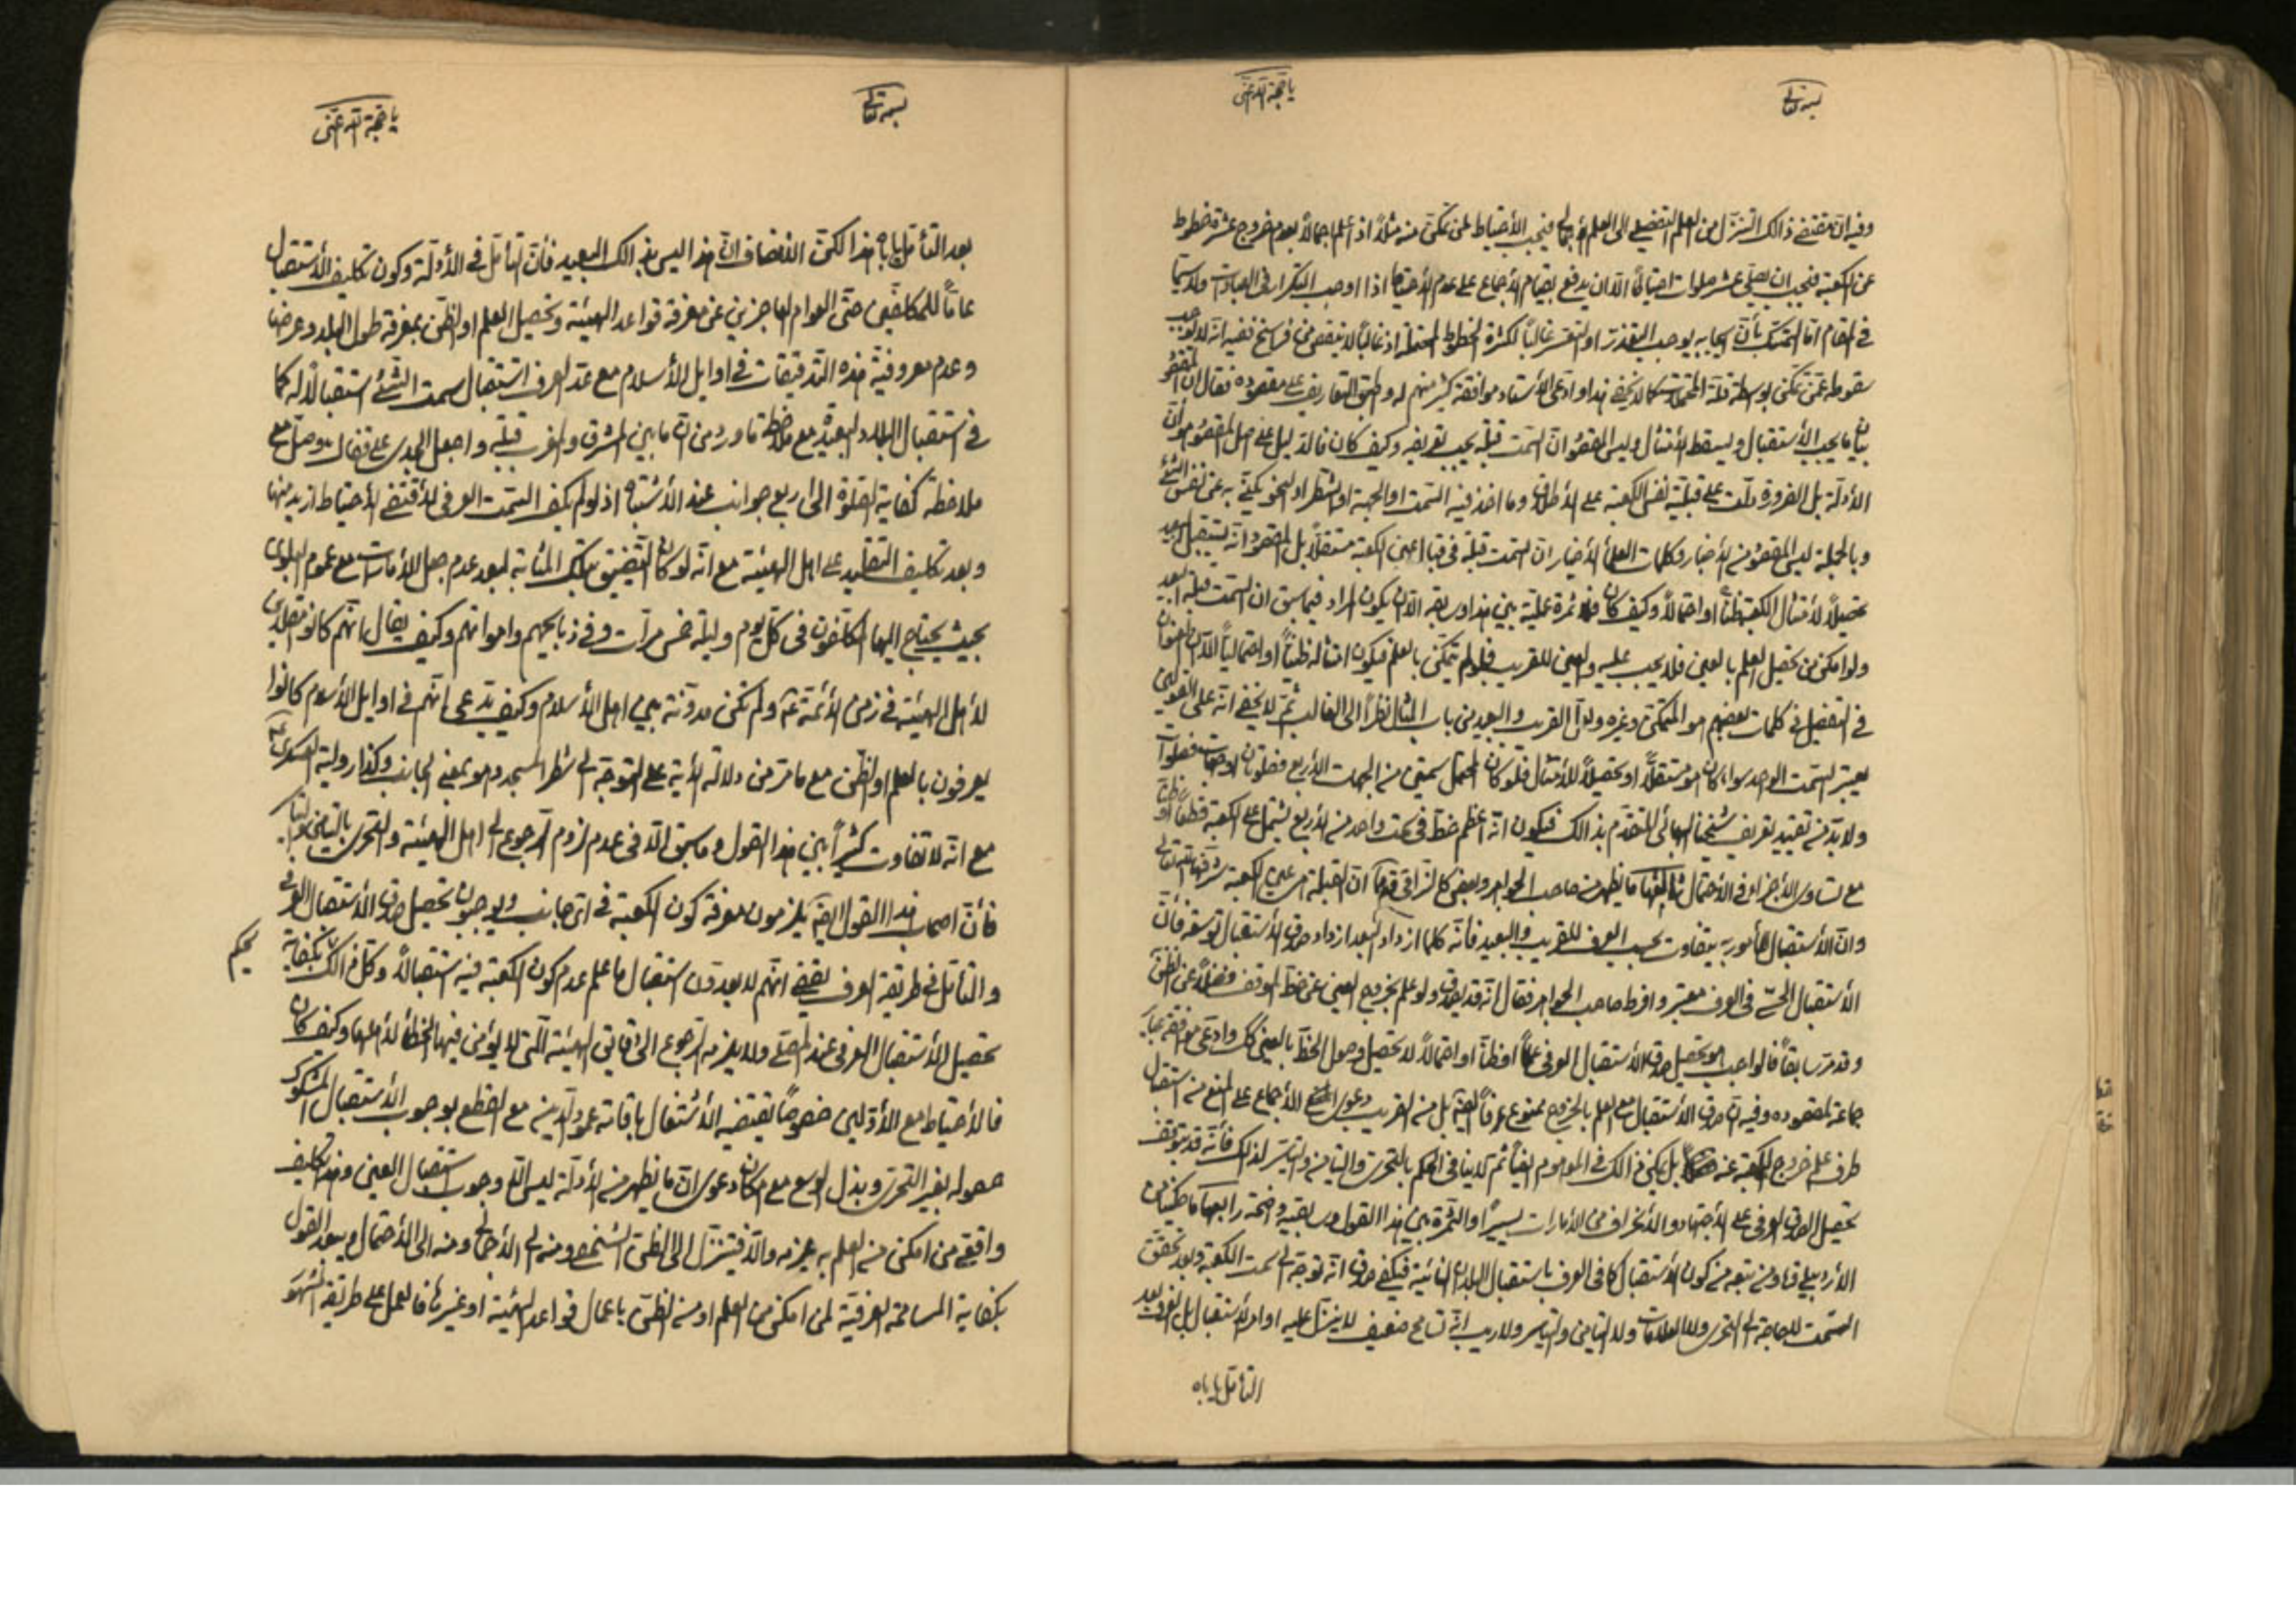 بسمه تعالی
یا حجة الله اغثنی
وفيه ان مقتضى ذالك التنزل من العلم التفضيلي الى العلم الاجمالي فيجب الأحتياط لمن تمكن منه مثلاً اذا علم اجمالاً بعدم خروج عشرة خطوط
عن الكعبة فيجب ان يصلي عشر صلوات احتياطاً الّا ان يدفع بقيام الأجماع على عدم الأحتياط اذا اوجب التكرار في العبادات ولا سيما
في المقام امّا التمسك بأن ايجابه يوجب التعذر او التعسر غالباً لكثرة الخطوط المحتملة اذ غالباً لا ينقص من فراسخ ففيه انه لا يوجب
سقوطه عمّن تمكن بواسطة قلة المحتملات كما لا يخفى هذا وادعى الأستاد موافقة كثير منهم له وطبق التعاريف على مقصوده فقال ان المقصود
بيان ما يجب الأستقبال ويسقط الأمتثال وليس المقصود ان السمت قبلة يجب تعريفه وكيف كان فالدليل على اصل المقصود هو ان
الأدلة بل الضرورة دلّت على قبلية نفس الكعبة على الأطلاق وما اخذ فيه السمت او الجهة او الشطر او النحو يكنى به عن نفس الشئ
وبالجملة ليس المقصود من الأخبار وكلمات العلماء الأخيار ان السمت قبلة في قبال عين الكعبة مستقلاً بل المقصود انه يستقبل البعيد
تحصيلاً لأمتثال الكعبة ظناً او احتمالاً وكيف كان فلا ثمرة عملية بين هذا وسابقه الّا ان يكون المراد فيما سبق ان السمت قبلة البعيد
ولو امكن من تحصيل العلم بالعين فلا يجب عليه والعين للقريب فلو لم يتمكن بالعلم فيكون امتثاله ظنياً او احتمالياً الّا ان العنوان
في التفصيل في كلمات بعضهم هو المتمكن وغيره ولعل القريب والبعيد من باب المثال نظراً الى الغالب ثم لا يخفى انه على القولين
يعتبر السمت الواحد سواء كان هو مستقلاً او تحصيلاً للأمتثال فلو كان المحتمل سمتين من الجهات الأربع فصلوتان او جهات فصلوات
ولا بد من تقييد تعريف شيخنا البهائي المتقدم بذالك فيكون انه اعظم خط في سمت واحد من الأربع يشتمل على الكعبة قطعاً او ظناً
مع تساوي الأجزاء في الأحتمال ثالثها ما يظهر من صاحب الجواهر وبعض كالنراقي قدهما ان القبلة هي عين الكعبة شرّفها الله تعالى
وان الأستقبال المأمور به يتفاوت بحسب العرف للقريب والبعيد فأنه كلما ازداد البعد ازداد صدق الأستقبال توسعة فأن
الأستقبال الحسّي في العرف معتبر وافرط صاحب الجواهر فقال انه قد يصدق ولو علم بخروج العين عن خط الموقف فضلاً عن الظن
وقد مرّ سابقاً فالواجب هو تحصيل صدق الأستقبال العرفي علماً او ظناً او احتمالاً لا تحصيل وصول الخط بالعين كك وادعى موافقة عبائر
جماعة لمقصوده وفيه ان صدق الأستقبال مع العلم بالخروج ممنوع عرفاً ايضاً بل من القريب دعوى الأجماع على المنع من استقبال
طرف علم خروج الكعبة عنه بل يكفي ذالك في الموهوم ايضاً ثم لا ينافي الحكم بالتحري والتيامن والتياسر لذلك فأنه قد يتوقف
تحصيل الصدق العرفي على الأجتهاد والأنحراف من الأمارات يسيراً والثمرة بين هذا القول وسابقيه واضحة رابعها ما حكي عن
الأردبيلي قد ومن تبعه من كون الأستقبال كافي العرف باستقبال البلدان النائية فيكفي صدق انه توجه الى سمت الكعبة وبعد تحقق
السمت لا حاجة الى التحري ولا العلامات ولا التيامن والتياسر ولا ريب انه تسامح ضعيف لا ينزل عليه اوامر الأستقبال بل العرف بعد
التأمل ياباه
بسمه تعالی
یا حجة الله اغثنی
بعد التأمل ياباه هذا لكن الأنصاف ان هذا ليس بذالك البعيد فأن التأمل في الأدلة وكون تكليف الأستقبال
عاماً للمكلفين حتى العوام العاجزين عن معرفة قواعد الهيئة وتحصيل العلم او الظن بمعرفة طول البلد وعرضها
وعدم معروفية هذه التدقيقات في اوايل الأسلام مع عدّ العرف استقبال سمت الشئ استقبالاً له كما
في استقبال البلاد البعيدة مع ملاحظة ما ورد من ان ما بين المشرق والمغرب قبلة واجعل الجدي على قفاك وصلّ مع
ملاحظة كفاية الصلوة الى اربع جوانب عند الأشتباه اذ لو لم يكف السمت العرفي لأقتضى الأحتياط ازيد منها
وبعد تكليف التقليد على اهل الهيئة مع انه لو كان التضييق بتلك المثابة لبعد عدم جعل الأمارات مع عموم البلوى
بحيث يحتاج اليها المكلفون في كل يوم وليلة خمس مرات وفي ذبايحهم وامواتهم وكيف يقال انهم كانوا مقلدي
لأهل الهيئة في زمن الأئمة ع ولم تكن مدونة بين اهل الأسلام وكيف يدعى انهم في اوايل الأسلام كانوا
يعرفون بالعلم او الظن مع ما مرّ من دلالة الأية على التوجه الى شطر المسجد وهو بمعنى الجانب وكذا رواية العسكري ع
مع انه لا تفاوت كثيراً بين هذا القول وما سبق الّا في عدم لزوم الرجوع الى اهل الهيئة والتحري بالتيامن والتياسر
فأن اصحاب هذا القول ايضاً يلزمون معرفة كون الكعبة في اي جانب ويوجبون تحصيل صدق الأستقبال العرفي
والتأمل في طريقة العرف يقضي انهم لا يعدون استقبال ما علم عدم كون الكعبة فيه استقبالاً وكل ذالك بكفاية
يحكم
تحصيل الأستقبال العرفي عند المصلي ولا يلزمه الرجوع الى دقايق الهيئة التي لا يؤمن فيها الخطأ لأهلها وكيف كان
فالأحتياط مع الأولين خصوصاً يقتضيه الأشتغال باقامة عمود الدين مع القطع بوجوب الأستقبال المشكوك
حصوله بغير التحري وبذل الوسع مع امكان دعوى ان ما يظهر من الأدلة ليس الّا وجوب استقبال العين وهذا تكليف
واقعي من امكن منه العلم به يلزمه والّا فيتنزل الى الظن الشخصي ومنه الى الأجمالي ومنه الى الأحتمال ويبعد القول
بكفاية المسامحة العرفية لمن امكن من العلم او من الظن باعمال قواعد الهيئة او غيرها فالعمل على طريقة المشهور